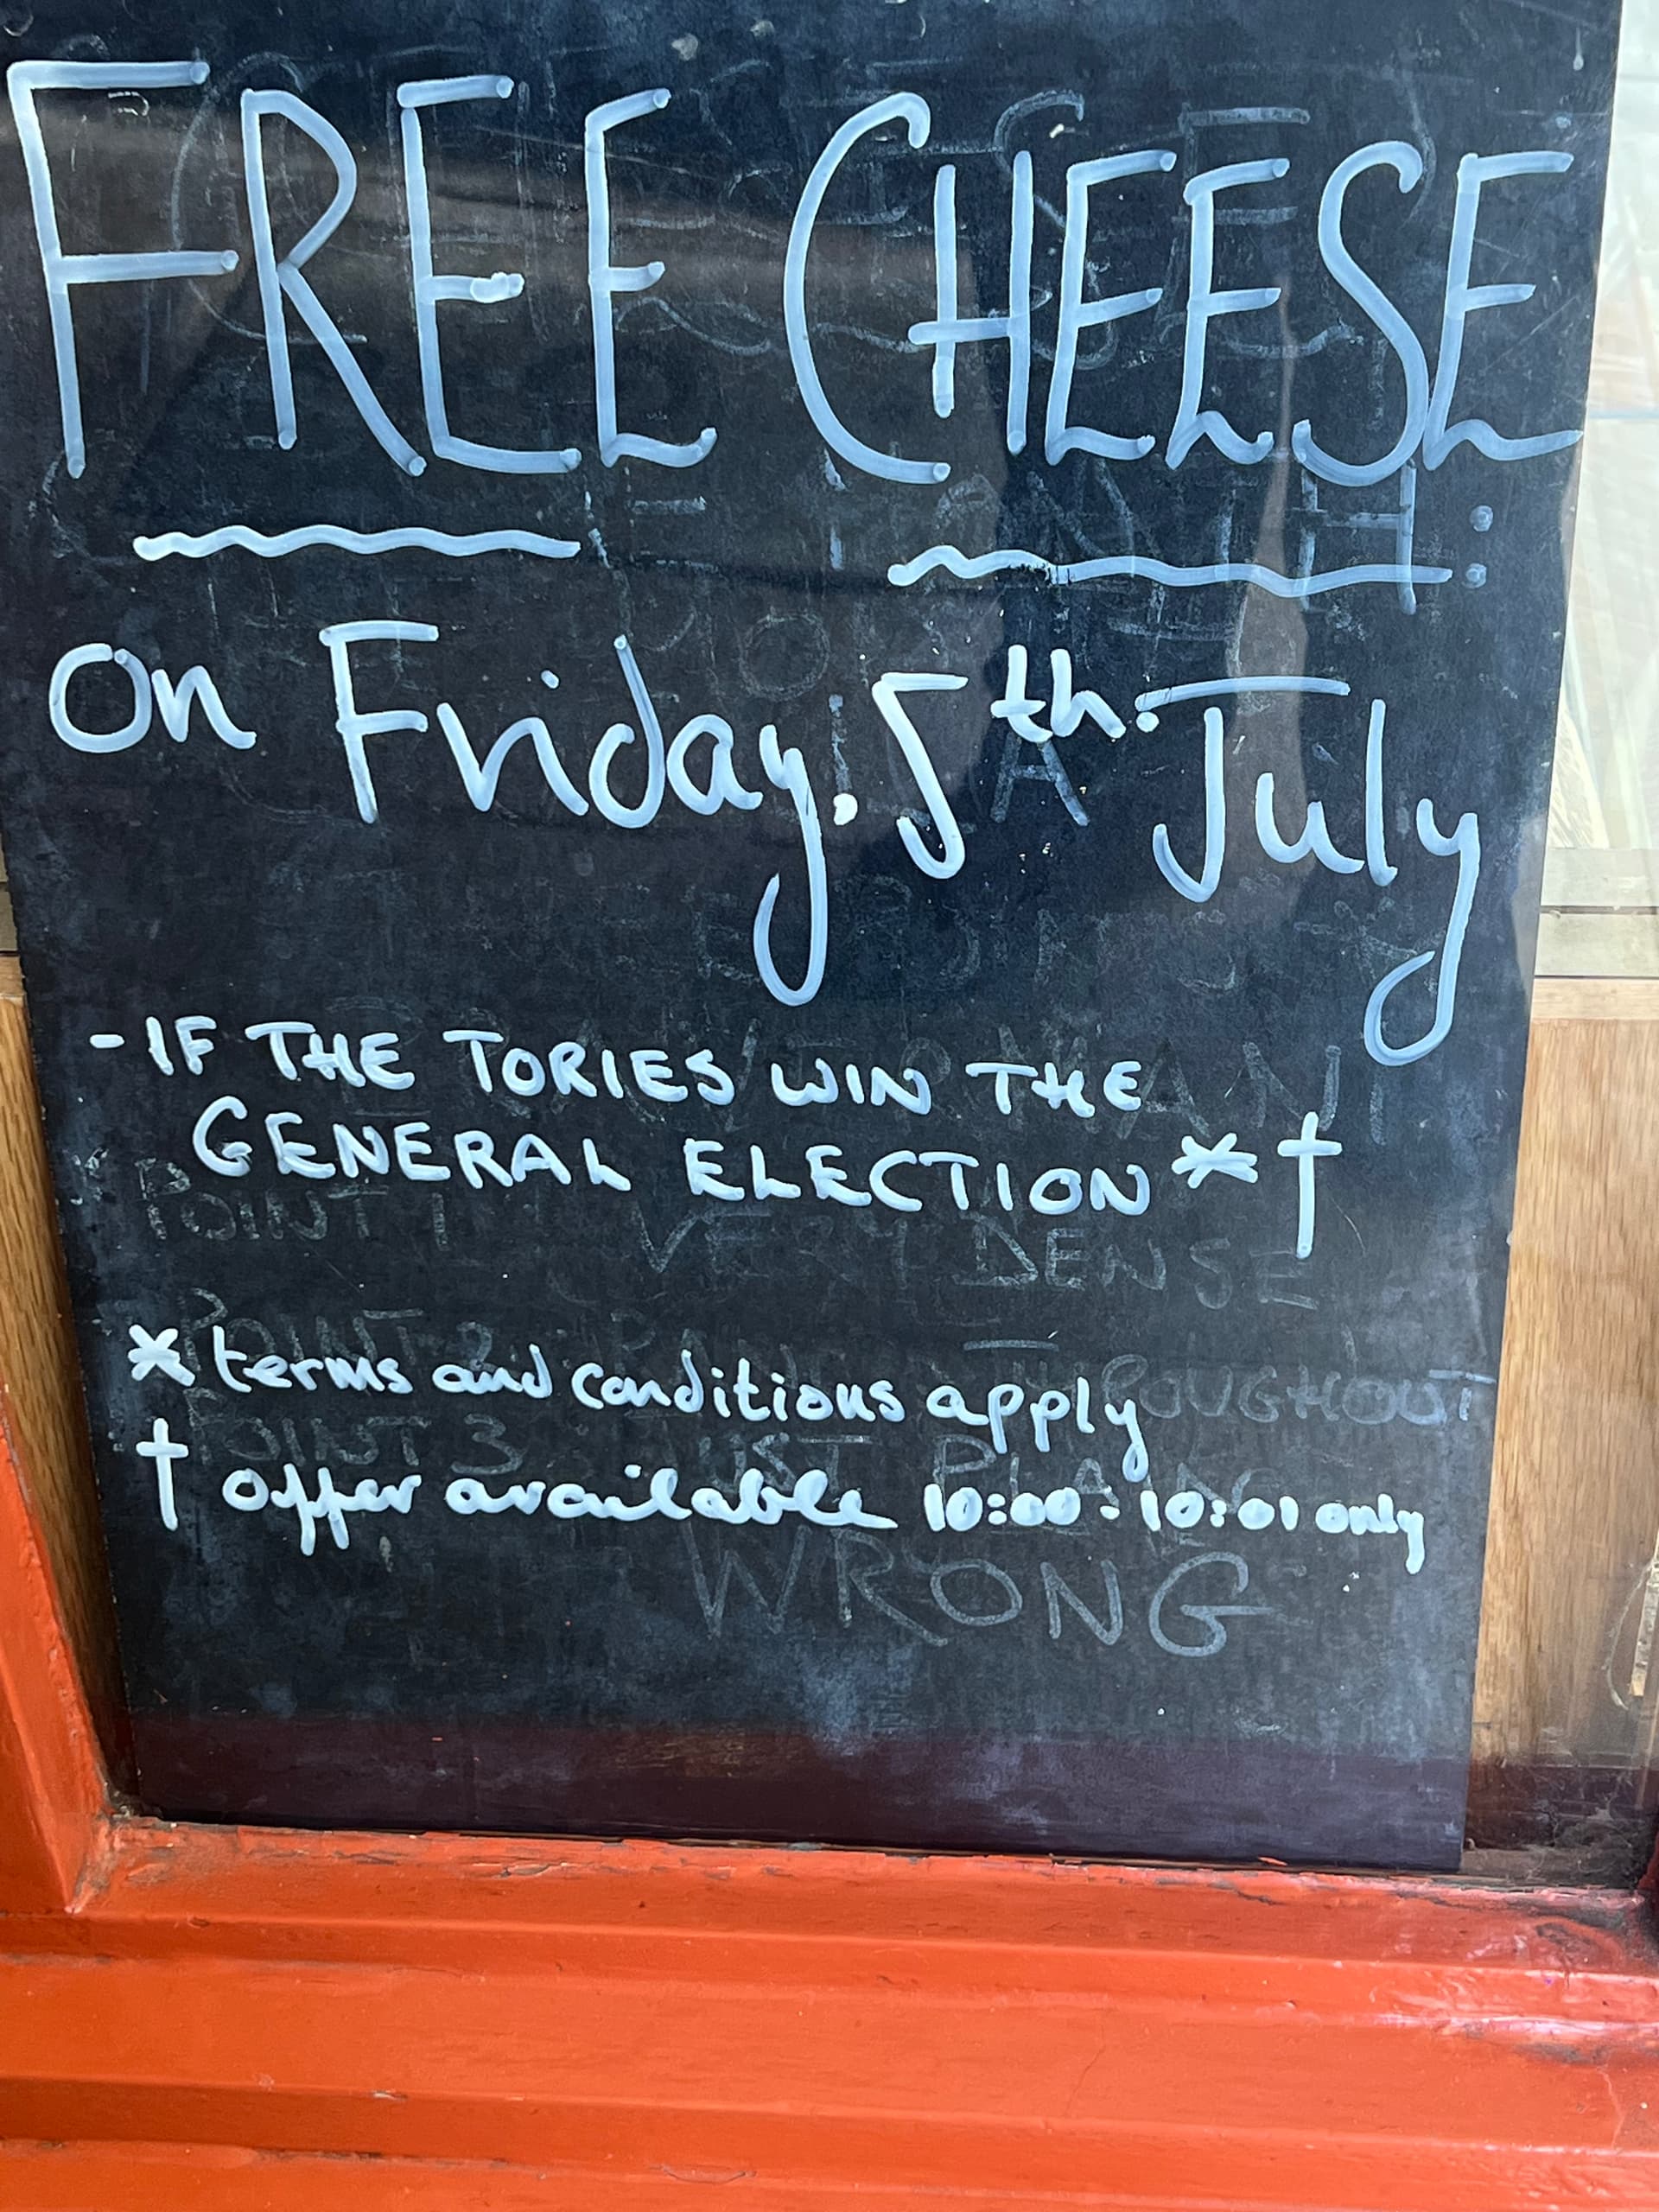 FREE CHEESE
on Friday. 5th. July
- IF THE TORIES WIN THE
GENERAL ELECTION * †
POINT 1 VERY DENSE
* terms and conditions apply
THROUGHOUT
POINT 3 JUST PLAIN
† offer available 10:00 - 10:01 only
WRONG